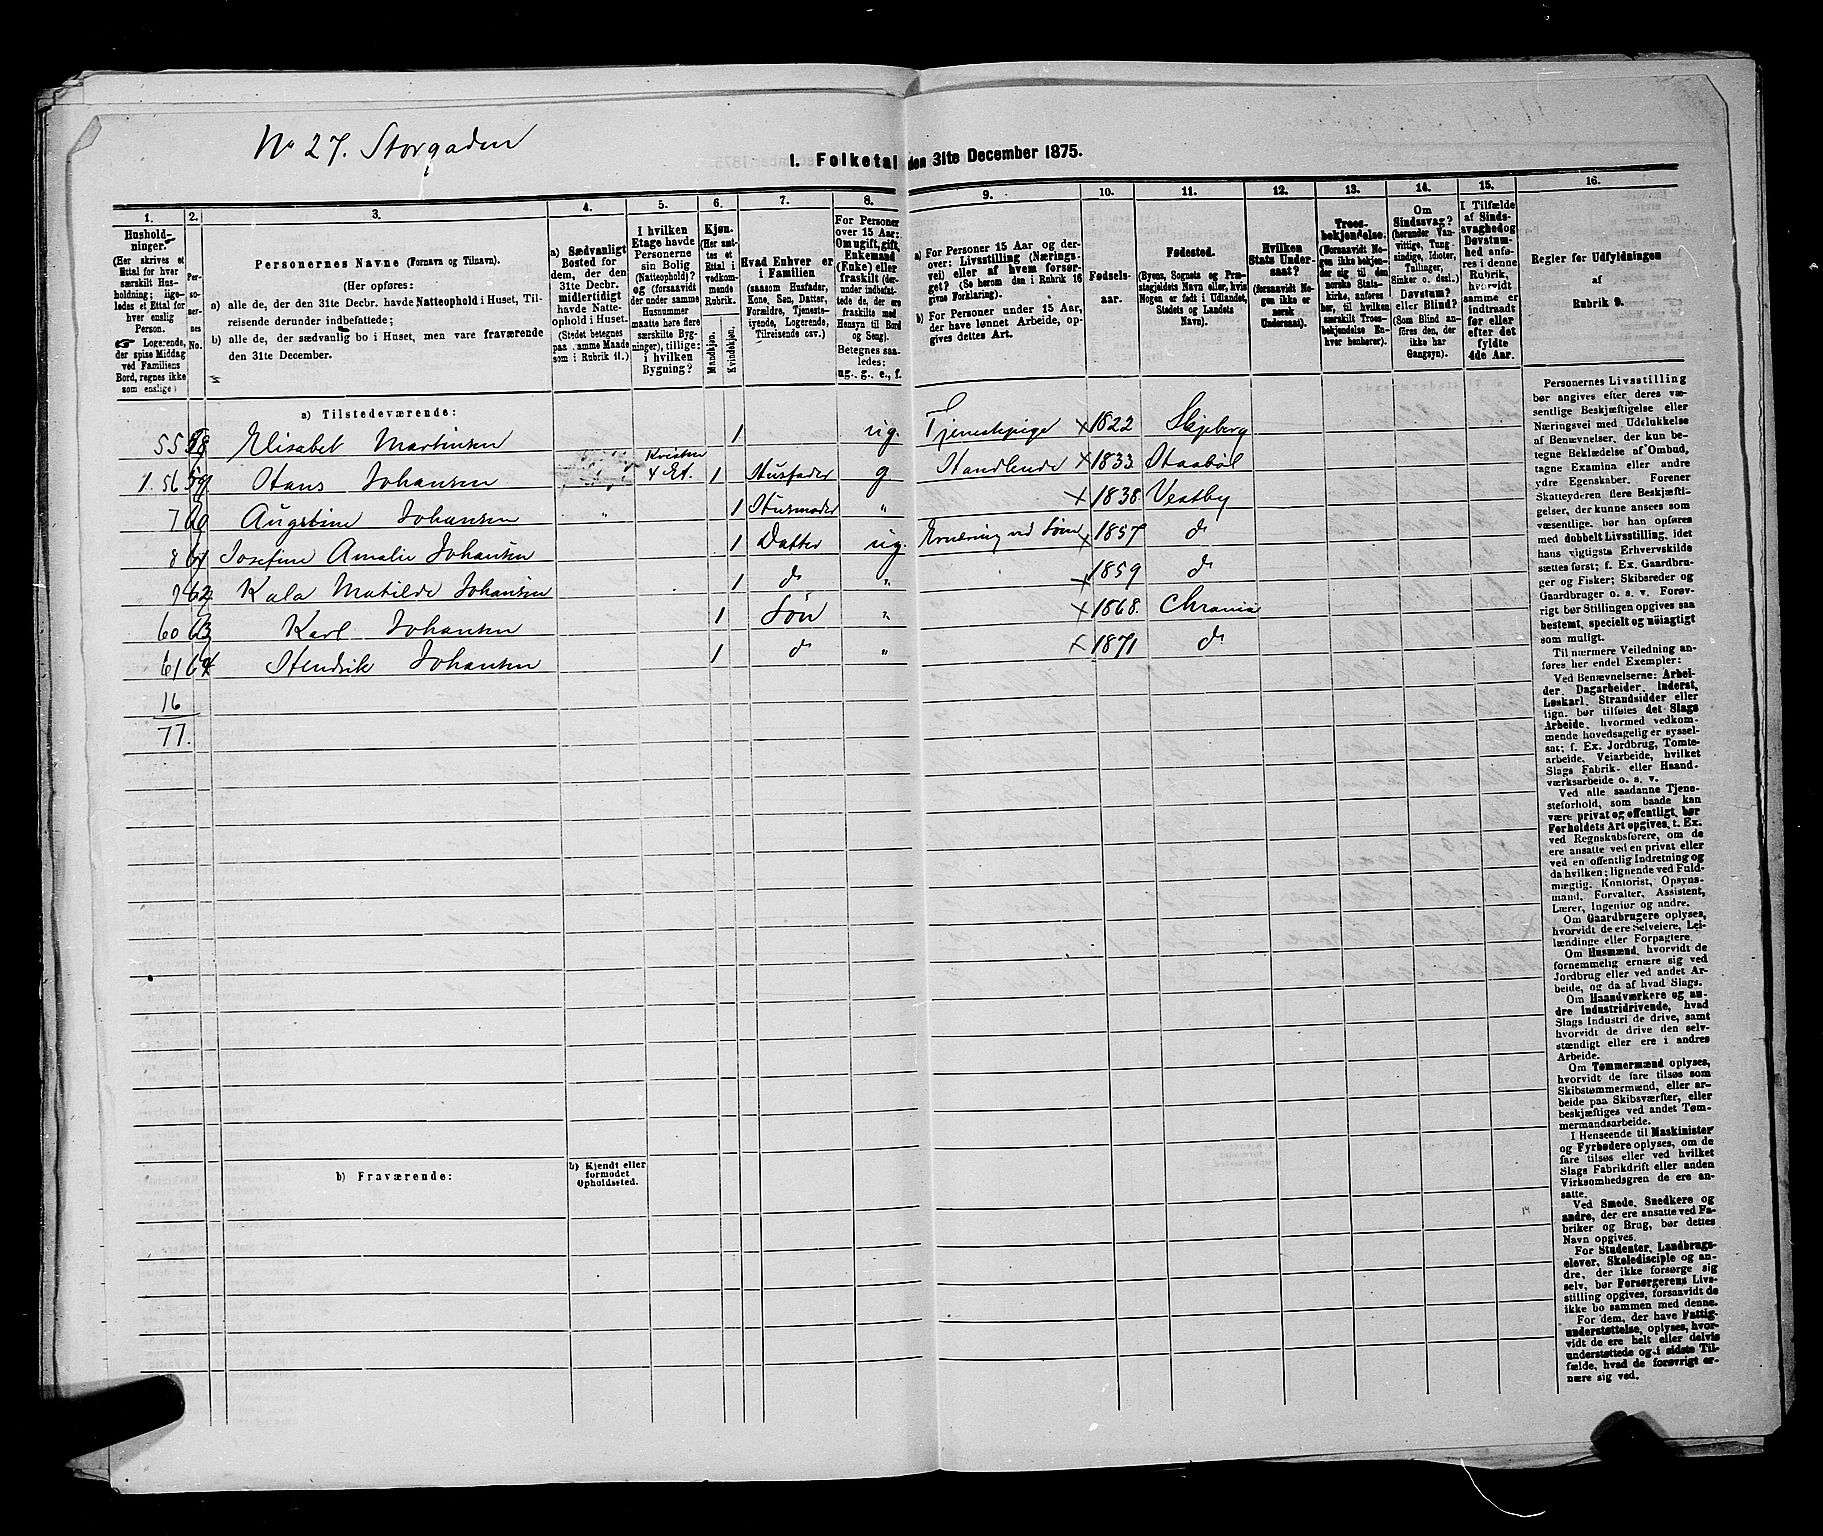 No 27. Storgaden
1. Folketal den 31te December 1875.
1. 2. 3. 4. 5. 6. 7. 8. 9. 10. 11. 12. 13. 14. 15. 16.
Husholdninger.
(Her skrives et Ettal for hver særskilt Husholdning; ligeledes et Ettal for hver enslig Person.
☞ Logerende, der spise Middag ved Familiens Bord, regnes ikke som enslige)
Personernes No.
Personernes Navne (Fornavn og Tilnavn).
(Her opføres:
a) alle de, der den 31te Decbr. havde Natteophold i Huset, Tilreisende derunder indbefattede;
b) alle de, der sædvanlig bo i Huset, men vare fraværende den 31te December.
a) Sædvanligt Bosted for dem, der den 31te Decbr. midlertidigt havde Natteophold i Huset. (Stedet betegnes paa samme Maade som i Rubrik 11.)
I hvilken Etage havde Personerne sin Bolig (Natteophold)? og (forsaavidt der under samme Husnummer maatte høre flere særskilte Bygninger), tillige: i hvilken Bygning?
Kjøn.
(Her sættes et Ettal i vedkommende Rubrik.
Mandkjøn. Kvindekjøn.
Hvad Enhver er i Familien
(saasom Husfader, Kone, Søn, Datter, Forældre, Tjenestetyende, Logerende, Tilreisende osv.)
For Personer over 15 Aar: Om ugift, gift, Enkemand (Enke) eller fraskilt (derunder indbefattede de, der ere fraskilte med Hensyn til Bord og Seng).
Betegnes saaledes: ug., g., e., f.
a) For Personer 15 Aar og derover: Livsstilling (Næringsvei) eller af hvem forsørget? (Se herom den i Rubrik 16 givne Forklaring).
b) For Personer under 15 Aar, der have lønnet Arbeide, opgives dettes Art.
Fødselsaar.
Fødested.
(Byens, Sognets og Præstegjeldets Navn eller, hvis Nogen er født i Udlandet, Stedets og Landets Navn).
Hvilken Stats Undersaat?
(forsaavidt Nogen ikke er norsk Undersaat).
Troesbekjendelse.
(Forsaavidt Nogen ikke bekjender sig til den norske Statskirke, anføres her, til hvilken særskilt Troesbekjendelse Enhver henhører).
Om Sindssvag? (herunder Vanvittige, Tungsindige, Idioter, Tullinger, Sinker o. desl.) Døvstum? eller Blind? (Som Blind anføres den, der ikke har Gangsyn).
I Tilfælde af Sindssvaghed og Døvstumhed anføres i denne Rubrik, hvorvidt samme er indtraadt før eller efter det fyldte 4de Aar.
Regler for Udfyldningen af Rubrik 9.
a) Tilstedeværende:
55 58 Elisabet Martinsen 1 ug. Tjenestepige × 1822 Skjeberg
1. 56 59 Hans Johansen Kvisten 4 Et. 1 Husfader g Handlende × 1833 Haabøl
7 60 Augstine Johansen " 1 Husmoder " × 1838 Vestby
8 61 Josefine Amalie Johansen 1 Datter ug. Ernæring ved Søm × 1857 do
9 62 Kala Matilde Johansen 1 do " × 1859 do
60 63 Karl Johansen 1 Søn " × 1868. Chrania
61 64 Hendrik Johansen 1 do " × 1871 do
16
77.
b) Fraværende:
b) Kjendt eller formodet Opholdssted.
Personernes Livsstilling
bør angives efter deres væsentlige Beskjæftigelse eller
Næringsvei med Udelukkelse
af Benævnelser, der kun betegne Beklædelse af Ombud,
tagne Examina eller andre
ydre Egenskaber. Forener
Skatteyderen flere Beskjæftigelser, der kunne ansees som
væsentlige, bør han opføres
med dobbelt Livsstilling, idet
hans vigtigste Erhvervskilde
sættes først; f. Ex. Gaardbruger og Fisker; Skibsreder og
Gaardbruger o. s. v. Forøvrigt bør Stillingen opgives saa
bestemt, specielt og nøiagtigt
som muligt.
Til nærmere Veiledning anføres her endel Exempler:
Ved Benævnelserne: Arbeider, Dagarbeider, Inderst,
Løskarl, Strandsidder eller
lign. bør tilføies det Slags
Arbeide, hvormed vedkommende hovedsagelig er sysselsat; f. Ex. Jordbrug, Tomtearbeide, Veiarbeide, hvilket
Slags Fabrik- eller Haandværksarbeide o. s. v.
Ved alle saadanne Tjenesteforhold, som baade kan
være privat og offentligt, bør
Forholdets Art opgives, t. Ex.
ved Regnskabsførere, om de
ere ansatte ved en privat eller
ved en offentlig Indretning og
da hvilken; lignende ved Fuldmægtig, Kontorist, Opsynsmand, Forvalter, Assistent,
Lærer, Ingeniør og andre.
Om Gaardbrugere oplyses,
hvorvidt de ere Selveiere, Leilændinge eller Forpagtere.
Om Husmænd, hvorvidt de
fornemmelig ernære sig ved
Jordbrug eller ved andet Arbeide, og da af hvad Slags.
Om Haandværkere og andre Industridrivende, hvad
Slags Industri de drive, samt
hvorvidt de drive den selvstændigt eller ere i andres
Arbeide.
Om Tømmermænd oplyses,
hvorvidt de fare tilsøs som
Skibstømmermænd, eller arbeide paa Skibsværfter, eller
beskjæftiges ved andet Tømmermandsarbeide.
I Henseende til Maskinister
og Fyrbødere oplyses, om de
fare tilsøs eller ved hvilket
Slags Fabrikdrift eller anden
Virksomhedsgren de ere ansatte.
Ved Smede, Snedkere og
andre, der ere ansatte ved Fabriker og Brug, bør dettes
Navn opgives.
For Studenter, Landbrugselever, Skoledisciple og andre, der ikke forsørge sig
selv, bør Forsørgerens Livsstilling opgives, forsaavidt de
ikke bo sammen med denne.
For dem, der have Fattigunderstøttelse, oplyses, hvorvidt de ere helt eller delvis
understøttede og i sidste Tilfælde, hvad de forøvrigt ernære sig ved.
14